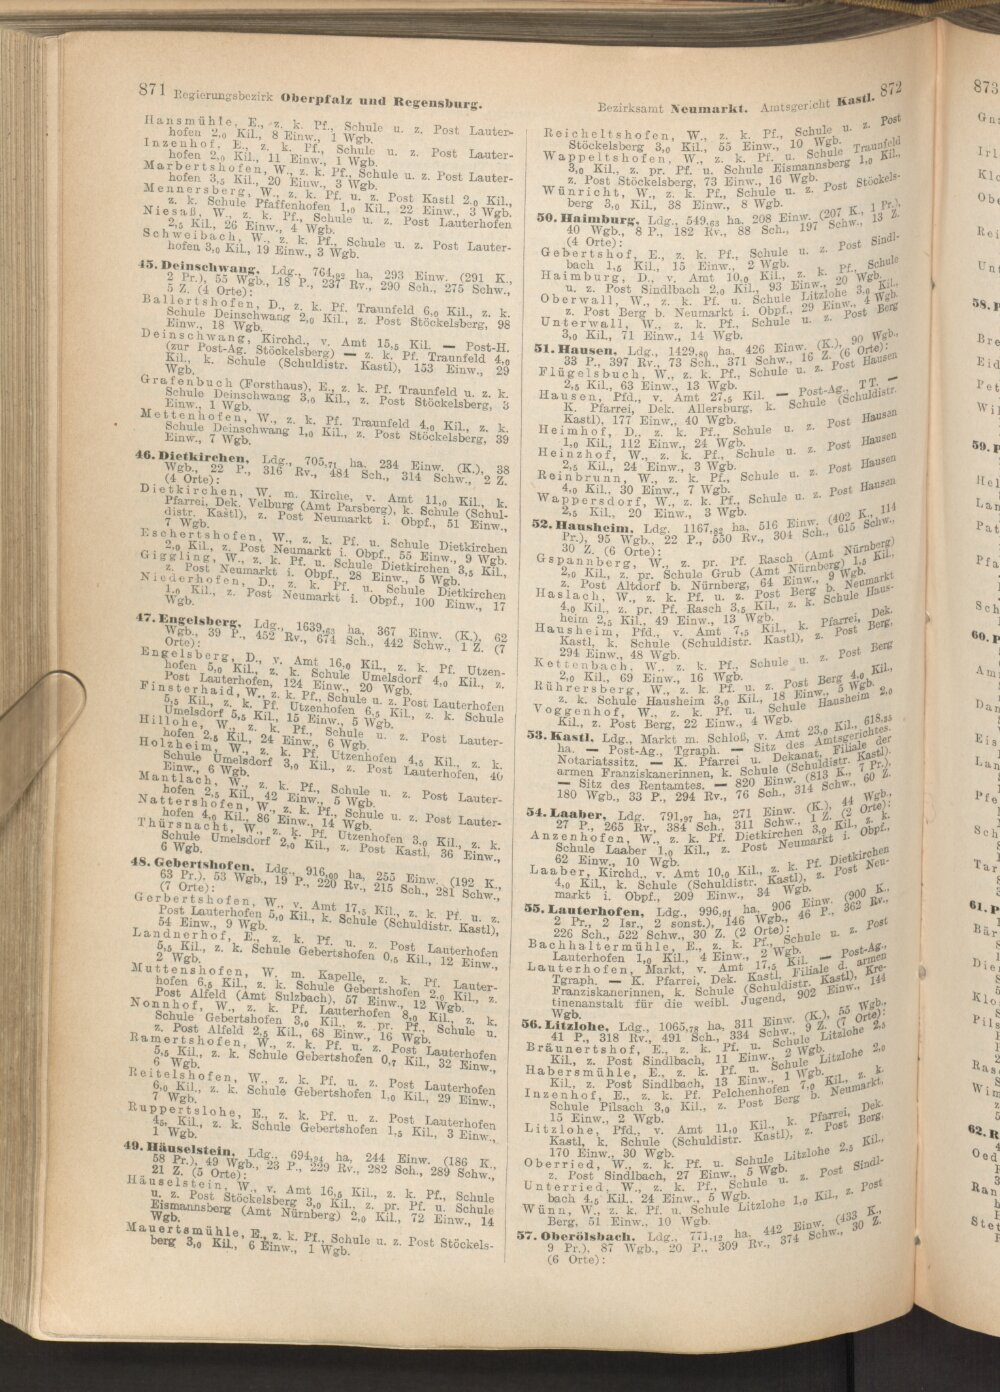 871 Regierungsbezirk Oberpfalz und Regensburg.
Hansmühle, E., z. k. Pf., Schule u. z. Post Lauter-
hofen 2,0 Kil., 8 Einw., 1 Wgb.
Inzenhof, E., z. k. Pf., Schule u. z. Post Lauter-
hofen 2,0 Kil., 11 Einw., 1 Wgb.
Marbertshofen, W., z. k. Pf., Schule u. z. Post Lauter-
hofen 3,5 Kil., 20 Einw., 3 Wgb.
Mennersberg, W., z. k. Pf. u. z. Post Kastl 2,0 Kil.,
z. k. Schule Pfaffenhofen 1,0 Kil., 22 Einw., 3 Wgb.
Niesaß, W., z. k. Pf., Schule u. z. Post Lauterhofen
2,5 Kil., 26 Einw., 4 Wgb.
Schweibach, W., z. k. Pf., Schule u. z. Post Lauter-
hofen 3,0 Kil., 19 Einw., 3 Wgb.
45. Deinschwang, Ldg., 764,92 ha, 293 Einw. (291 K.,
2 Pr.), 55 Wgb., 18 P., 237 Rv., 290 Sch., 275 Schw.,
5 Z. (4 Orte):
Ballertshofen, D., z. k. Pf. Traunfeld 6,0 Kil., z. k.
Schule Deinschwang 2,0 Kil., z. Post Stöckelsberg, 98
Einw., 18 Wgb.
Deinschwang, Kirchd., v. Amt 15,5 Kil. — Post-H.
(zur Post-Ag. Stöckelsberg) — z. k. Pf. Traunfeld 4,0
Kil., k. Schule (Schuldistr. Kastl), 153 Einw., 29
Wgb.
Grafenbuch (Forsthaus), E., z. k. Pf. Traunfeld u. z. k.
Schule Deinschwang 3,0 Kil., z. Post Stöckelsberg, 3
Einw., 1 Wgb.
Mettenhofen, W., z. k. Pf. Traunfeld 4,0 Kil., z. k.
Schule Deinschwang 1,0 Kil., z. Post Stöckelsberg, 39
Einw., 7 Wgb.
46. Dietkirchen, Ldg., 705,71 ha, 234 Einw. (K.), 38
Wgb., 22 P., 316 Rv., 484 Sch., 314 Schw., 2 Z.
(4 Orte):
Dietkirchen, W. m. Kirche, v. Amt 11,0 Kil., k.
Pfarrei, Dek. Velburg (Amt Parsberg), k. Schule (Schul-
distr. Kastl), z. Post Neumarkt i. Obpf., 51 Einw.,
7 Wgb.
Eschertshofen, W., z. k. Pf. u. Schule Dietkirchen
2,0 Kil., z. Post Neumarkt i. Obpf., 55 Einw., 9 Wgb.
Giggling, W., z. k. Pf. u. Schule Dietkirchen 3,5 Kil.,
z. Post Neumarkt i. Obpf., 28 Einw., 5 Wgb.
Niederhofen, D., z. k. Pf. u. Schule Dietkirchen
1,0 Kil., z. Post Neumarkt i. Obpf., 100 Einw., 17
Wgb.
47. Engelsberg, Ldg., 1639,63 ha, 367 Einw. (K.), 62
Wgb., 39 P., 452 Rv., 674 Sch., 442 Schw., 1 Z. (7
Orte):
Engelsberg, D., v. Amt 16,0 Kil., z. k. Pf. Utzen-
hofen 5,0 Kil., z. k. Schule Umelsdorf 4,0 Kil., z.
Post Lauterhofen, 124 Einw., 20 Wgb.
Finsterhaid, W., z. k. Pf., Schule u. z. Post Lauterhofen
5,5 Kil., z. k. Pf. Utzenhofen 6,5 Kil., z. k. Schule
Umelsdorf 5,5 Kil., 15 Einw., 5 Wgb.
Hillohe, W., z. k. Pf., Schule u. z. Post Lauter-
hofen 2,5 Kil., 24 Einw., 6 Wgb.
Holzheim, W., z. k. Pf. Utzenhofen 4,5 Kil., z. k.
Schule Umelsdorf 3,0 Kil., z. Post Lauterhofen, 40
Einw., 6 Wgb.
Mantlach, W., z. k. Pf., Schule u. z. Post Lauter-
hofen 2,5 Kil., 42 Einw., 5 Wgb.
Nattershofen, W., z. k. Pf., Schule u. z. Post Lauter-
hofen 4,0 Kil., 86 Einw., 14 Wgb.
Thürsnacht, W., z. k. Pf. Utzenhofen 3,0 Kil., z. k.
Schule Umelsdorf 2,0 Kil., z. Post Kastl, 36 Einw.,
6 Wgb.
48. Gebertshofen, Ldg., 916,00 ha, 255 Einw. (192 K.,
63 Pr.), 53 Wgb., 19 P., 220 Rv., 215 Sch., 281 Schw.,
(7 Orte):
Gerbertshofen, W., v. Amt 17,5 Kil., z. k. Pf. u. z.
Post Lauterhofen 5,0 Kil., k. Schule (Schuldistr. Kastl),
54 Einw., 9 Wgb.
Landnerhof, E., z. k. Pf. u. z. Post Lauterhofen
5,5 Kil., z. k. Schule Gebertshofen 0,5 Kil., 12 Einw.,
2 Wgb.
Muttenshofen, W. m. Kapelle, z. k. Pf. Lauter-
hofen 6,5 Kil., z. k. Schule Gebertshofen 2,0 Kil., z.
Post Alfeld (Amt Sulzbach), 57 Einw., 12 Wgb.
Nonnhof, W., z. k. Pf. Lauterhofen 8,0 Kil., z. k.
Schule Gebertshofen 3,0 Kil., z. pr. Pf., Schule u.
z. Post Alfeld 2,5 Kil., 68 Einw., 16 Wgb.
Ramertshofen, W., z. k. Pf. u. z. Post Lauterhofen
5,5 Kil., z. k. Schule Gebertshofen 0,7 Kil., 32 Einw.,
6 Wgb.
Reitelshofen, W., z. k. Pf. u. z. Post Lauterhofen
6,0 Kil., z. k. Schule Gebertshofen 1,0 Kil., 29 Einw.,
7 Wgb.
Ruppertslohe, E., z. k. Pf. u. z. Post Lauterhofen
Kil., z. k. Schule Gebertshofen 1,5 Kil., 3 Einw.,
1 Wgb.
49. Häuselstein, Ldg., 694,24 ha, 244 Einw. (186 K.,
58 Pr.), 49 Wgb., 23 P., 229 Rv., 282 Sch., 289 Schw.,
21 Z. (5 Orte):
Häuselstein, W., v. Amt 16,5 Kil., z. k. Pf., Schule
u. z. Post Stöckelsberg 3,0 Kil., z. pr. Pf. u. Schule
Eismannsberg (Amt Nürnberg) 2,0 Kil., 72 Einw., 14
Wgb.
Mauertsmühle, E., z. k. Pf., Schule u. z. Post Stöckels-
berg 3,0 Kil., 6 Einw., 1 Wgb.
Bezirksamt Neumarkt. Amtsgericht Kastl. 872
Reicheltshofen, W., z. k. Pf., Schule u. z. Post
Stöckelsberg 3,0 Kil., 55 Einw., 10 Wgb.
Wappeltshofen, W., z. k. Pf. u. Schule Traunfeld
3,0 Kil., z. pr. Pf. u. Schule Eismannsberg 1,0 Kil.,
z. Post Stöckelsberg, 73 Einw., 16 Wgb.
Wünricht, W., z. k. Pf., Schule u. z. Post Stöckels-
berg 3,0 Kil., 38 Einw., 8 Wgb.
50. Haimburg, Ldg., 549,63 ha, 208 Einw. (207 K., 1 Pr.),
40 Wgb., 8 P., 182 Rv., 88 Sch., 197 Schw., 13 Z.
(4 Orte):
Gebertshof, E., z. k. Pf., Schule u. z. Post Sindl-
bach 1,5 Kil., 15 Einw., 2 Wgb.
Haimburg, D., v. Amt 10,0 Kil., z. k. Pf., Schule
u. z. Post Sindlbach 2,0 Kil., 93 Einw., 20 Wgb.
Oberwall, W., z. k. Pf. u. Schule Litzlohe 3,0 Kil.,
z. Post Berg b. Neumarkt i. Obpf., 29 Einw., 4 Wgb.
Unterwall, W., z. k. Pf., Schule u. z. Post Berg
3,0 Kil., 71 Einw., 14 Wgb.
51. Hausen, Ldg., 1429,80 ha, 426 Einw. (K.), 90 Wgb.,
33 P., 397 Rv., 73 Sch., 371 Schw., 16 Z. (6 Orte):
Flügelsbuch, W., z. k. Pf., Schule u. z. Post Hausen
2,5 Kil., 63 Einw., 13 Wgb.
Hausen, Pfd., v. Amt 27,5 Kil. — Post-Ag., TT. —
K. Pfarrei, Dek. Allersburg, k. Schule (Schuldistr.
Kastl), 177 Einw., 40 Wgb.
Heimhof, D., z. k. Pf., Schule u. z. Post Hausen
1,0 Kil., 112 Einw., 24 Wgb.
Heinzhof, W., z. k. Pf., Schule u. z. Post Hausen
2,5 Kil., 24 Einw., 3 Wgb.
Reinbrunn, W., z. k. Pf., Schule u. z. Post Hausen
4,0 Kil., 30 Einw., 7 Wgb.
Wappersdorf, W., z. k. Pf., Schule u. z. Post Hausen
2,5 Kil., 20 Einw., 3 Wgb.
52. Hausheim, Ldg. 1167,82 ha, 516 Einw. (402 K., 114
Pr.), 95 Wgb., 22 P., 550 Rv., 304 Sch., 615 Schw.,
30 Z. (6 Orte):
Gspannberg, W., z. pr. Pf. Rasch (Amt Nürnberg)
2,0 Kil., z. pr. Schule Grub (Amt Nürnberg) 1,5 Kil.,
z. Post Altdorf b. Nürnberg, 64 Einw., 9 Wgb.
Haslach, W., z. k. Pf. u. z. Post Berg b. Neumarkt
4,0 Kil., z. pr. Pf. Rasch 3,5 Kil., z. k. Schule Haus-
heim 2,5 Kil., 49 Einw., 13 Wgb.
Hausheim, Pfd., v. Amt 7,5 Kil., k. Pfarrei, Dek.
Kastl, k. Schule (Schuldistr. Kastl), z. Post Berg,
294 Einw., 48 Wgb.
Kettenbach, W., z. k. Pf., Schule u. z. Post Berg
2,0 Kil., 69 Einw., 16 Wgb.
Rührersberg, W., z. k. Pf. u. z. Post Berg 4,0 Kil.,
z. k. Schule Hausheim 3,0 Kil., 18 Einw., 5 Wgb.
Voggenhof, W., z. k. Pf. u. Schule Hausheim 2,0
Kil., z. Post Berg, 22 Einw., 4 Wgb.
53. Kastl, Ldg., Markt m. Schloß, v. Amt 23,0 Kil., 618,55
ha. — Post-Ag., Tgraph. — Sitz des Amtsgerichtes.
Notariatssitz. — K. Pfarrei u. Dekanat, Filiale der
armen Franziskanerinnen, k. Schule (Schuldistr. Kastl).
— Sitz des Rentamtes. — 820 Einw. (813 K., 7 Pr.),
180 Wgb., 33 P., 294 Rv., 76 Sch., 314 Schw., 60 Z.
54. Laaber, Ldg. 791,97 ha, 271 Einw. (K.), 44 Wgb.,
27 P., 265 Rv., 384 Sch., 311 Schw., 1 Z. (2 Orte):
Anzenhofen, W., z. k. Pf. Dietkirchen 3,0 Kil., z. k.
Schule Laaber 1,0 Kil., z. Post Neumarkt i. Obpf.,
62 Einw., 10 Wgb.
Laaber, Kirchd., v. Amt 10,0 Kil., z. k. Pf. Dietkirchen
4,0 Kil., k. Schule (Schuldistr. Kastl), z. Post Neu-
markt i. Obpf., 209 Einw., 34 Wgb.
55. Lauterhofen, Ldg., 996,91 ha, 906 Einw. (900 K.,
2 Pr., 2 Isr., 2 sonst.), 146 Wgb., 46 P., 362 Rv.,
226 Sch., 522 Schw., 30 Z. (2 Orte):
Bachhaltermühle, E., z. k. Pf., Schule u. z. Post
Lauterhofen 1,0 Kil., 4 Einw., 2 Wgb.
Lauterhofen, Markt, v. Amt 17,5 Kil. — Post-Ag.,
Tgraph. — K. Pfarrei, Dek. Kastl, Filiale d. armen
Franziskanerinnen, k. Schule (Schuldistr. Kastl), Kre-
tinenanstalt für die weibl. Jugend, 902 Einw., 144
Wgb.
56. Litzlohe, Ldg., 1065,78 ha, 311 Einw. (K.), 55 Wgb.,
41 P., 318 Rv., 491 Sch., 334 Schw., 9 Z. (7 Orte):
Bräunertshof, E., z. k. Pf. u. Schule Litzlohe 2,5
Kil., z. Post Sindlbach, 11 Einw., 2 Wgb.
Habersmühle, E., z. k. Pf. u. Schule Litzlohe 2,0
Kil., z. Post Sindlbach, 13 Einw., 1 Wgb.
Inzenhof, E., z. k. Pf. Pelchenhofen 7,0 Kil., z. k.
Schule Pilsach 3,0 Kil., z. Post Berg b. Neumarkt,
15 Einw., 2 Wgb.
Litzlohe, Pfd., v. Amt 11,0 Kil., k. Pfarrei, Dek.
Kastl, k. Schule (Schuldistr. Kastl), z. Post Berg,
170 Einw., 30 Wgb.
Oberried, W., z. k. Pf. u. Schule Litzlohe 2,5 Kil.,
z. Post Sindlbach, 27 Einw., 5 Wgb.
Unterried, W., z. k. Pf., Schule u. z. Post Sindl-
bach 4,5 Kil., 24 Einw., 5 Wgb.
Wünn, W., z. k. Pf. u. Schule Litzlohe 1,0 Kil., z. Post
Berg, 51 Einw., 10 Wgb.
57. Oberölsbach, Ldg., 771,12 ha, 442 Einw. (433 K.,
9 Pr.), 87 Wgb., 20 P., 309 Rv., 374 Schw., 30 Z.
(6 Orte):
873
58. P
59. P
60. P
61. P
62. R